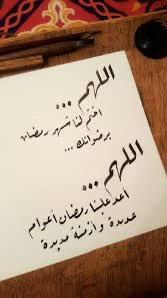 اللهم ...
اختم لنا شهر رمضان
برضوانك ...
اللهم ...
أعد علينا رمضان أعوام
عديدة وأزمنة مديدة